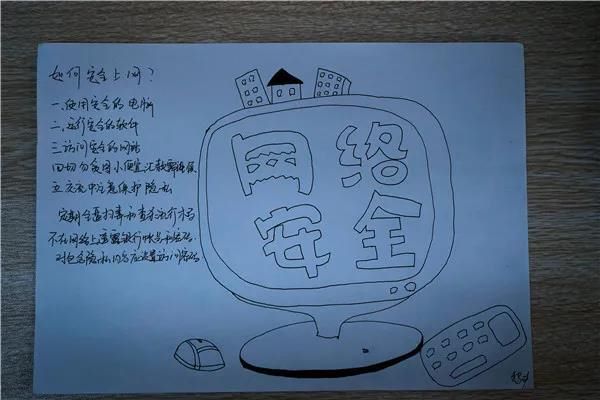 如何安全上网？
一.使用安全的电脑
二.运行安全的软件
三.访问安全的网站
四.切勿贪图小便宜,汇款需谨慎
五.交友中注意保护隐私
定期全盘扫毒和查杀流行木马
不在网络上透露银行帐号和密码.
对包含隐私内容应设置访问密码
网络
安全